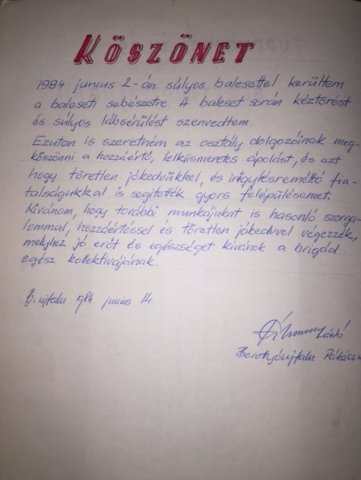 KÖSZÖNET
1984 junius 2-án súlyos balesettel kerültem
a baleseti sebészetre. A baleset során kéztörést
és súlyos lábsérülést szenvedtem.
Ezuton is szeretném az osztály dolgozóinak meg-
köszönni a hozzáértő, lelkiismeretes ápolást, és azt
hogy töretlen jókedvükkel, és irigylésreméltó fia-
talságukkal is segitették gyors felépülésemet.
Kivánom, hogy további munkájukat is hasonló szorga-
lommal, hozzáértéssel és töretlen jókedvvel végezzék,
melyhez jó erőt és egészséget kivánok a brigád
egész kollektivájának.
B. ujfalu 984 junius 14.
László
Berettyóujfalu